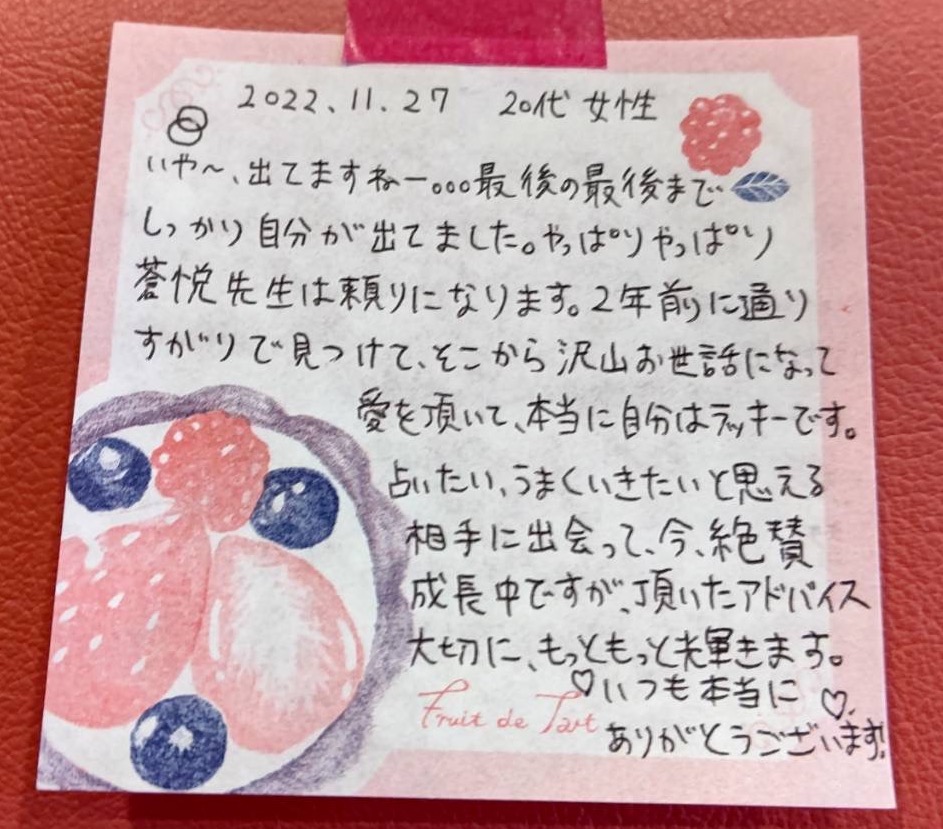 2022.11.27 20代 女性
いや〜、出てますねー。。。最後の最後まで
しっかり自分が出てました。やっぱりやっぱり
蒼悦先生は頼りになります。2年前に通り
すがりで見つけて、そこから沢山お世話になって
愛を頂いて、本当に自分はラッキーです。
占いたい、うまくいきたいと思える
相手に出会って、今、絶賛
成長中ですが、頂いたアドバイス
大切に、もっともっと輝きます。
♡いつも本当に♡
ありがとうございます!
Fruit de Tart